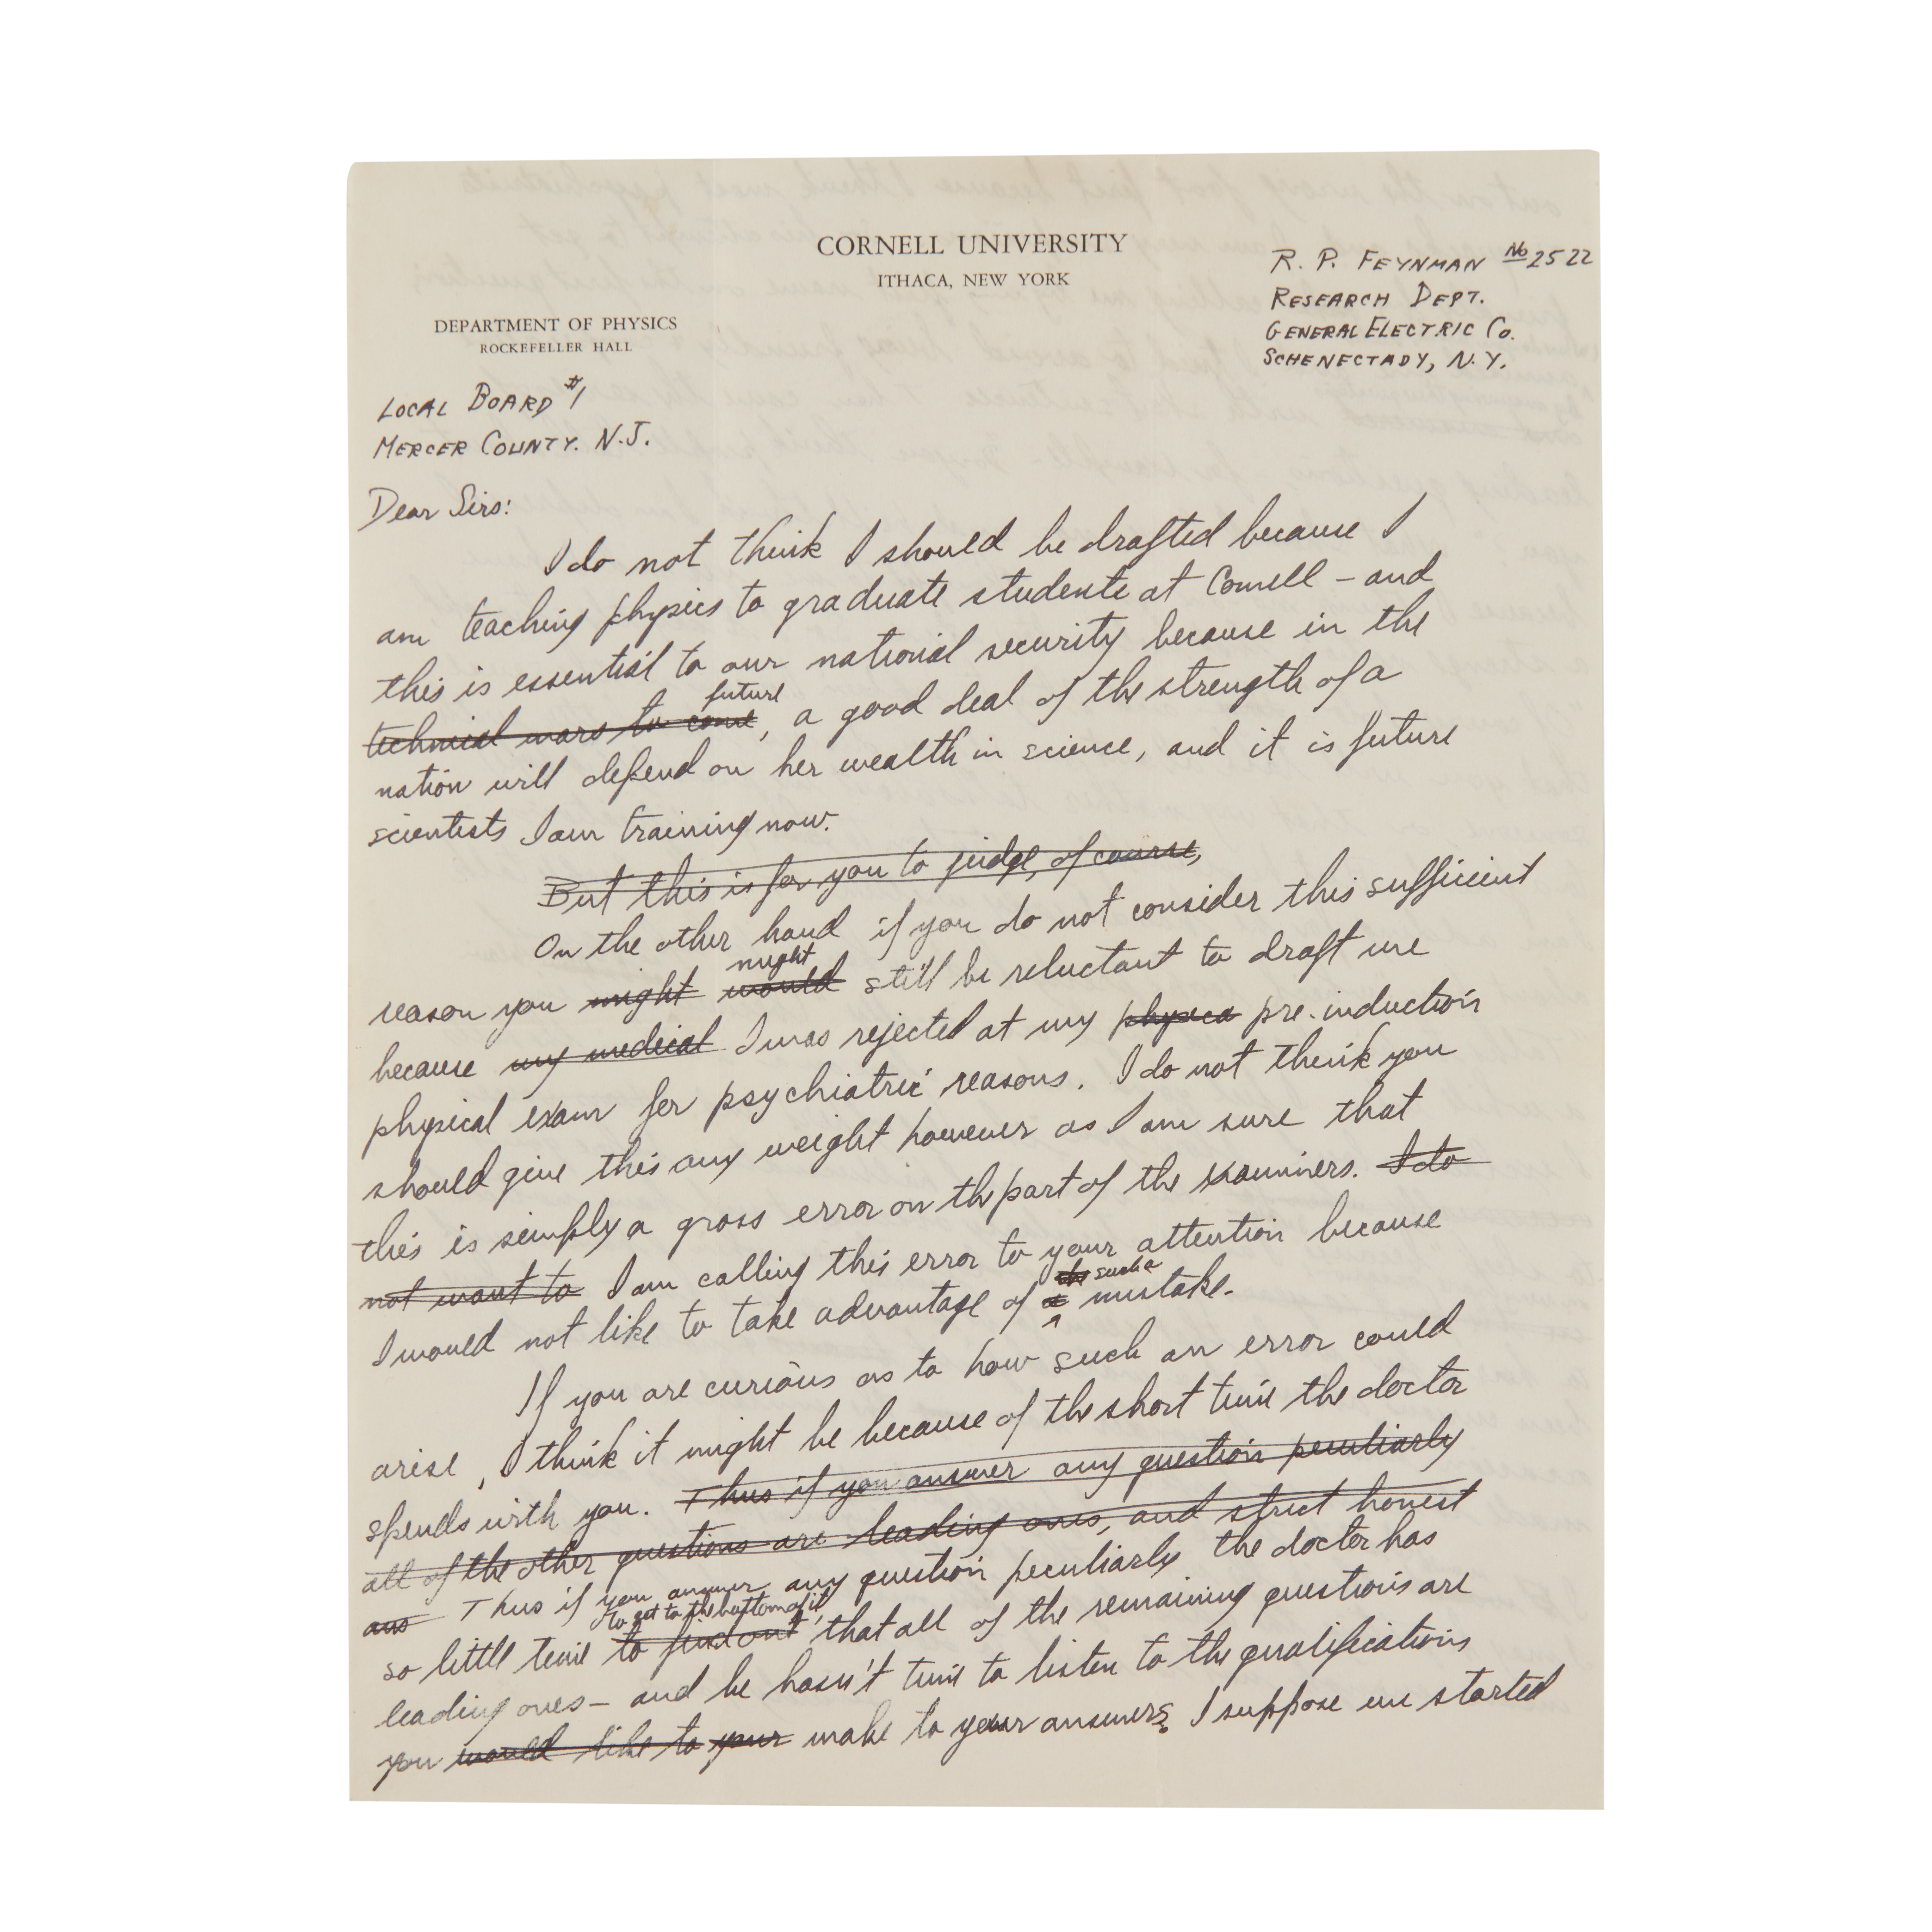 CORNELL UNIVERSITY
ITHACA, NEW YORK
R. P. FEYNMAN No 2522
RESEARCH DEPT.
GENERAL ELECTRIC Co.
SCHENECTADY, N.Y.
DEPARTMENT OF PHYSICS
ROCKEFELLER HALL
LOCAL BOARD #1
MERCER COUNTY. N.J.
Dear Sirs:
I do not think I should be drafted because I
am teaching physics to graduate students at Cornell – and
this is essential to our national security because in the
future
technical wars to come, a good deal of the strength of a
nation will depend on her wealth in science, and it is future
scientists I am training now.
But this is for you to judge, of course,
On the other hand if you do not consider this sufficient
might
reason you might would still be reluctant to draft me
because my medical I was rejected at my physica pre-induction
physical exam for psychiatric reasons. I do not think you
should give this any weight however as I am sure that
this is simply a gross error on the part of the examiners. I do
not want to I am calling this error to your attention because
the such a
I would not like to take advantage of a mistake.
If you are curious as to how such an error could
arise, I think it might be because of the short time the doctor
spends with you. Thus if you answer any question peculiarly
all of the other questions are leading ones, and strict honest
ans Thus if you answer any question peculiarly the doctor has
to get to the bottom of it,
so little time to find out that all of the remaining questions are
leading ones – and he hasn't time to listen to the qualifications
you would like to your make to your answers. I suppose we started